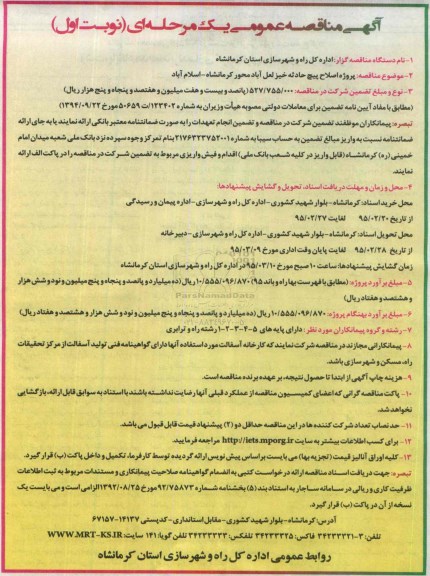 آگهی مناقصه عمومی یک مرحله‌ای (نوبت اول)
۱- نام دستگاه مناقصه گزار: اداره کل راه و شهرسازی استان کرمانشاه
۲- موضوع مناقصه: پروژه اصلاح پیچ حادثه خیز لعل آباد محور کرمانشاه - اسلام آباد
۳- نوع و مبلغ تضمین شرکت در مناقصه: ۵۲۷/۷۵۵/۰۰۰ (پانصد و بیست و هفت میلیون و هفتصد و پنجاه و پنج هزار ریال)
(مطابق با مفاد آیین نامه تضمین برای معاملات دولتی مصوبه هیأت وزیران به شماره ۱۲۳۴۰۲/ت۵۰۶۵۹ مورخ ۱۳۹۴/۰۹/۲۲)
تبصره: پیمانکاران موظفند تضمین شرکت در مناقصه و تضمین انجام تعهدات را به صورت ضمانتنامه معتبر بانکی ارائه نمایند یا به جای ارائه
ضمانتنامه نسبت به واریز مبالغ تضمین به حساب سیبا به شماره ۲۱۷۶۳۳۳۷۵۲۰۰۱ بنام تمرکز وجوه سپرده نزد بانک ملی شعبه میدان امام
خمینی (ره) کرمانشاه (قابل واریز در کلیه شعب بانک ملی) اقدام و فیش واریزی مربوط به تضمین شرکت در مناقصه را در پاکت الف ارائه
نمایند.
۴- محل و زمان و مهلت دریافت اسناد، تحویل و گشایش پیشنهادها:
محل خرید اسناد: کرمانشاه - بلوار شهید کشوری - اداره کل راه و شهرسازی - اداره پیمان و رسیدگی
از تاریخ ۹۵/۰۲/۲۰ لغایت ۹۵/۰۲/۲۷
محل تحویل اسناد: کرمانشاه - بلوار شهید کشوری - اداره کل راه و شهرسازی - دبیرخانه
از تاریخ ۹۵/۰۲/۲۸ لغایت پایان وقت اداری مورخ ۹۵/۰۳/۰۹
زمان گشایش پیشنهادها: ساعت ۱۰ صبح مورخ ۹۵/۰۳/۱۰ در اداره کل راه و شهرسازی استان کرمانشاه
۵- مبلغ برآورد پروژه: (مطابق با فهرست بها راه و باند ۹۵) ۱۰/۵۵۵/۰۹۶/۸۷۰ ریال (ده میلیارد و پانصد و پنجاه و پنج میلیون و نود و شش هزار
و هشتصد و هفتاد ریال)
۶- مبلغ برآورد بهنگام پروژه: ۱۰/۵۵۵/۰۹۶/۸۷۰ ریال (ده میلیارد و پانصد و پنجاه و پنج میلیون و نود و شش هزار و هشتصد و هفتاد ریال)
۷- رشته و گروه پیمانکاران مورد نظر: دارای پایه های ۵-۴-۳-۲-۱ رشته راه و ترابری
۸- پیمانکارانی مجازند در مناقصه شرکت نمایند که کارخانه آسفالت مورد استفاده آنها دارای گواهینامه فنی تولید آسفالت از مرکز تحقیقات
راه، مسکن و شهرسازی باشد.
۹- هزینه چاپ آگهی از ابتدا تا حصول نتیجه، بر عهده برنده مناقصه است.
۱۰- پاکت مناقصه گرانی که اعضای کمیسیون مناقصه از عملکرد قبلی آنها رضایت نداشته باشند با استناد به سوابق قابل ارائه، بازگشایی
نخواهد شد.
۱۱- حد نصاب تعداد شرکت کننده ها در این مناقصه حداقل دو (۲) پیشنهاد قیمت قابل قبول می باشد.
۱۲- برای کسب اطلاعات بیشتر به سایت http://iets.mporg.ir مراجعه فرمایید.
۱۳- کلیه اوراق آنالیز قیمت (تجزیه بها) می بایست براساس پیش نویس ارائه گردیده توسط کارفرما، تکمیل و داخل پاکت (ب) قرار گیرد.
تبصره: جهت دریافت اسناد مناقصه ارائه درخواست کتبی به انضمام گواهینامه صلاحیت پیمانکاری و مستندات مربوط به ثبت اطلاعات
ظرفیت کاری و ریالی در سامانه ساجار به استناد بند (۵) بخشنامه شماره ۹۲/۷۵۸۷۳ مورخ ۱۳۹۲/۰۸/۲۵ الزامی است و می بایست یک
نسخه از آن در پاکت (ب) قرار گیرد.
آدرس: کرمانشاه - بلوار شهید کشوری - مقابل استانداری - کدپستی ۱۴۱۳۷-۶۷۱۵۷
تلفن: ۳-۳۴۲۳۳۳۲۱ فاکس: ۳۴۲۳۳۳۲۵ تلفن گویا: ۱۴۱ سایت: WWW.MRT-KS.IR
روابط عمومی اداره کل راه و شهرسازی استان کرمانشاه